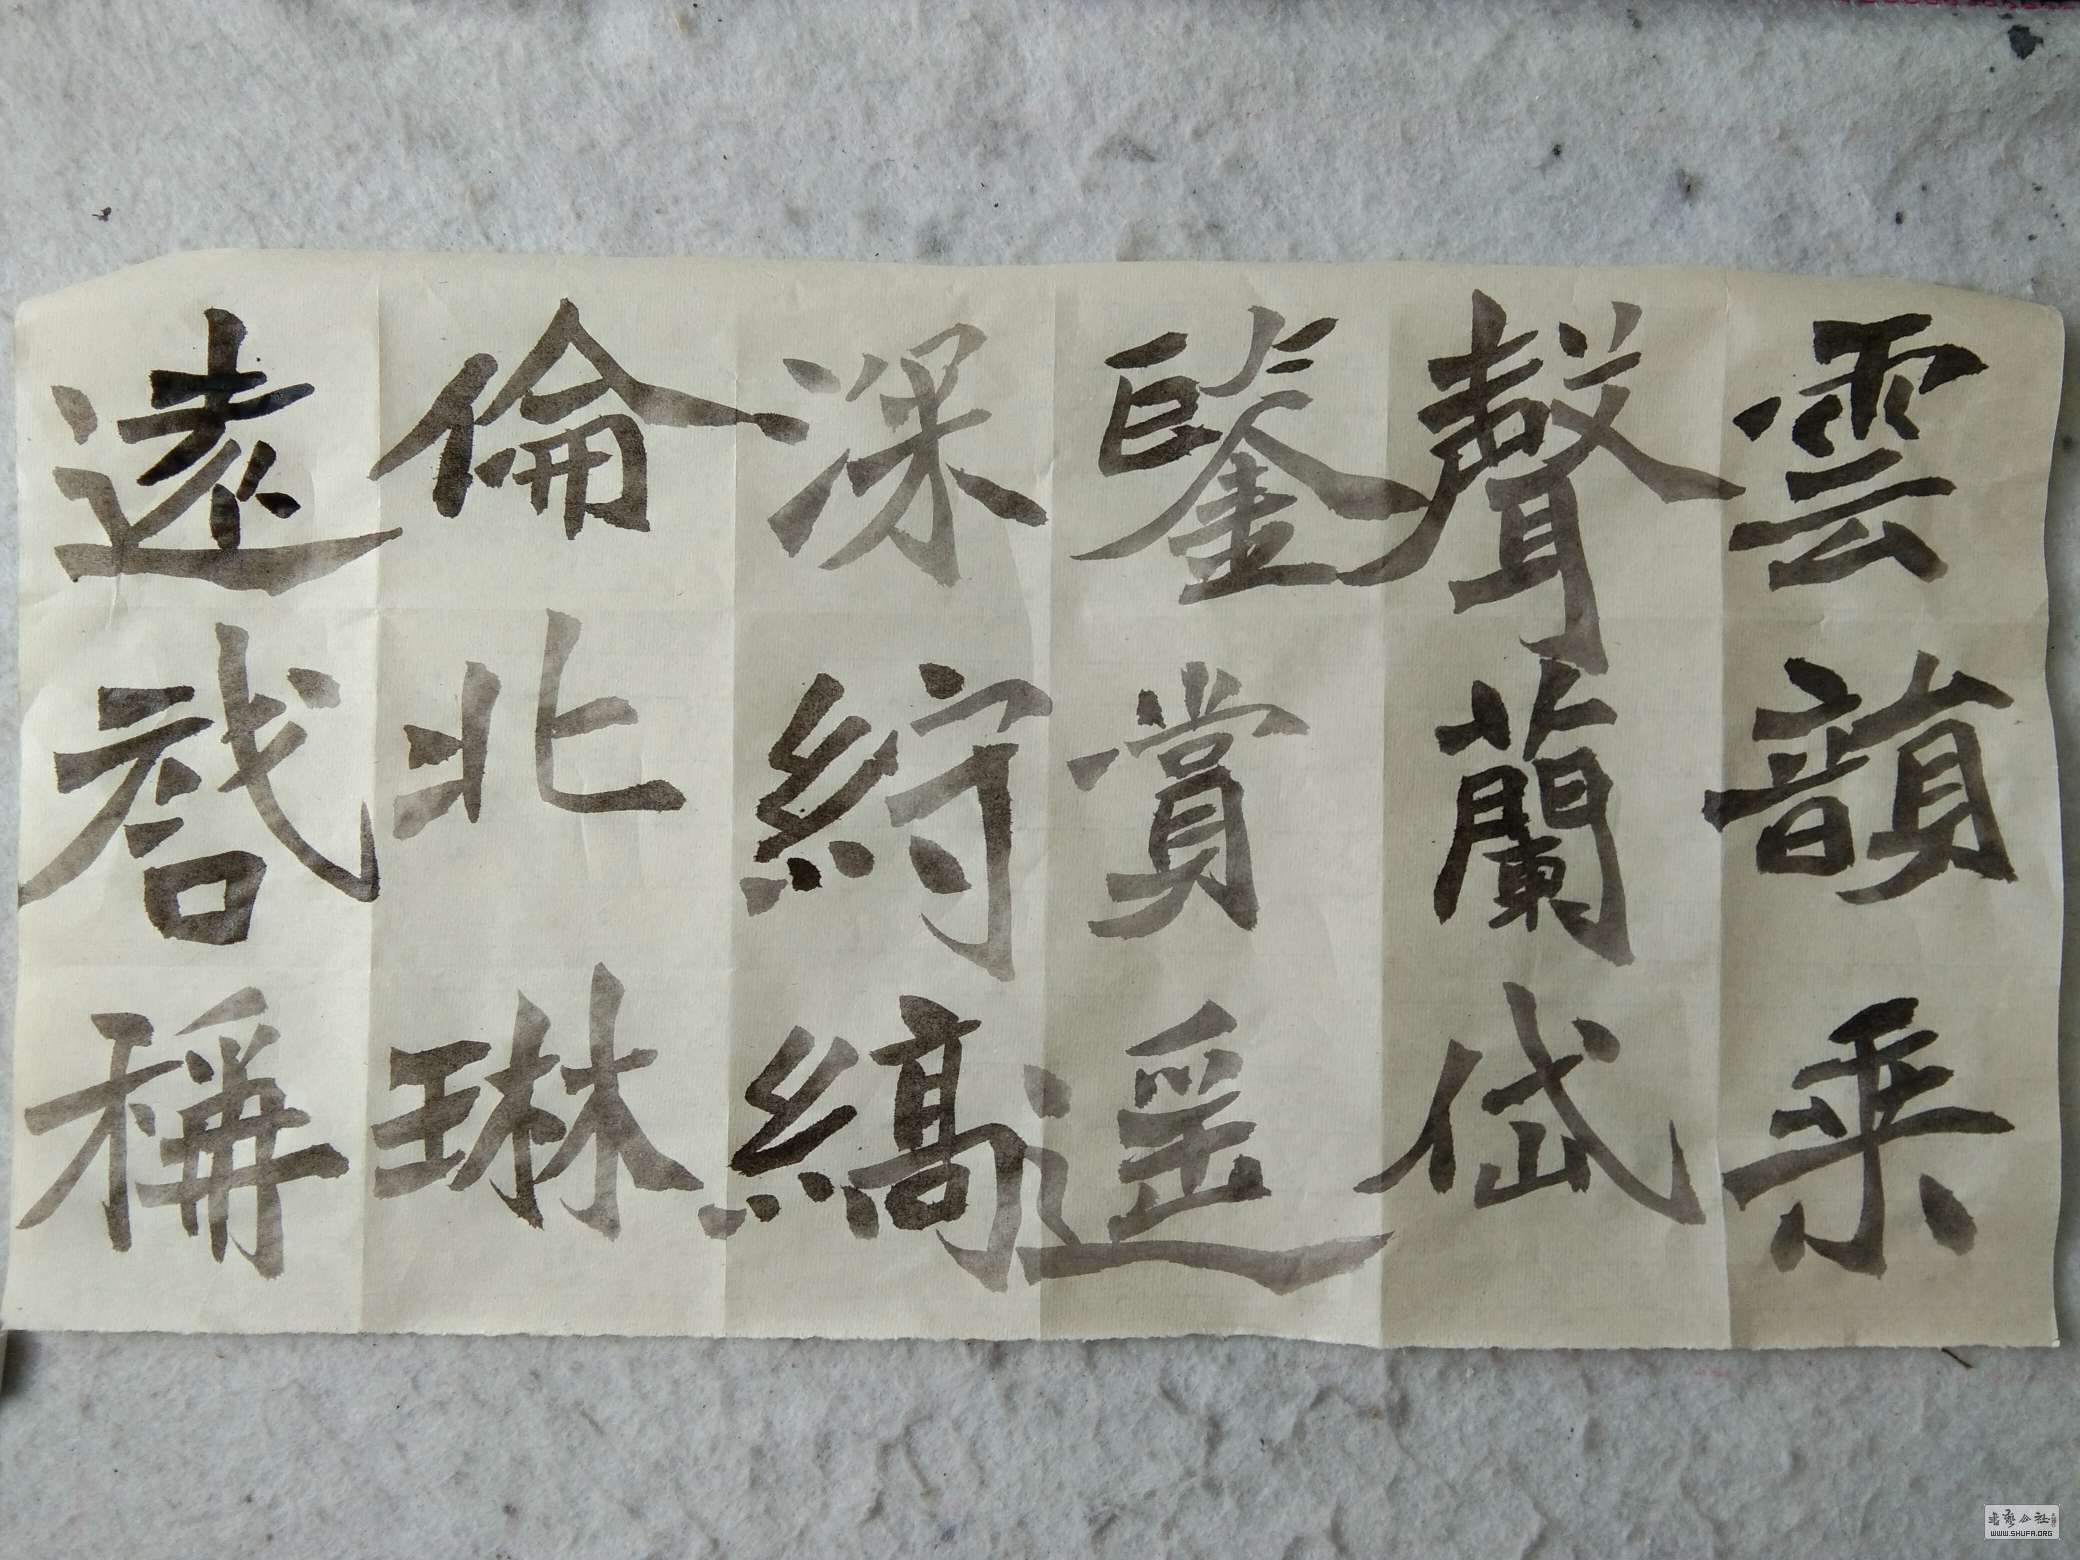 雲韻乘
聲蘭岱
鑒賞遥
深紵縞
倫北琳
遠稱
书艺公社
WWW.SHUFA.ORG